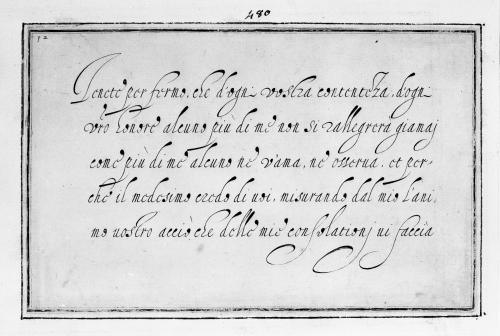 480
12
Tenete per fermo, che d'ogni vostra contenteza, d'ogn
vro honore alcuno più di me non si rallegrerà giamaj
come più di me alcuno ne v'ama, ne osserua, et per-
che il medesimo credo di uoi, misurando dal mio l'ani
mo uostro acciò che delle mie consolationj ui faccia